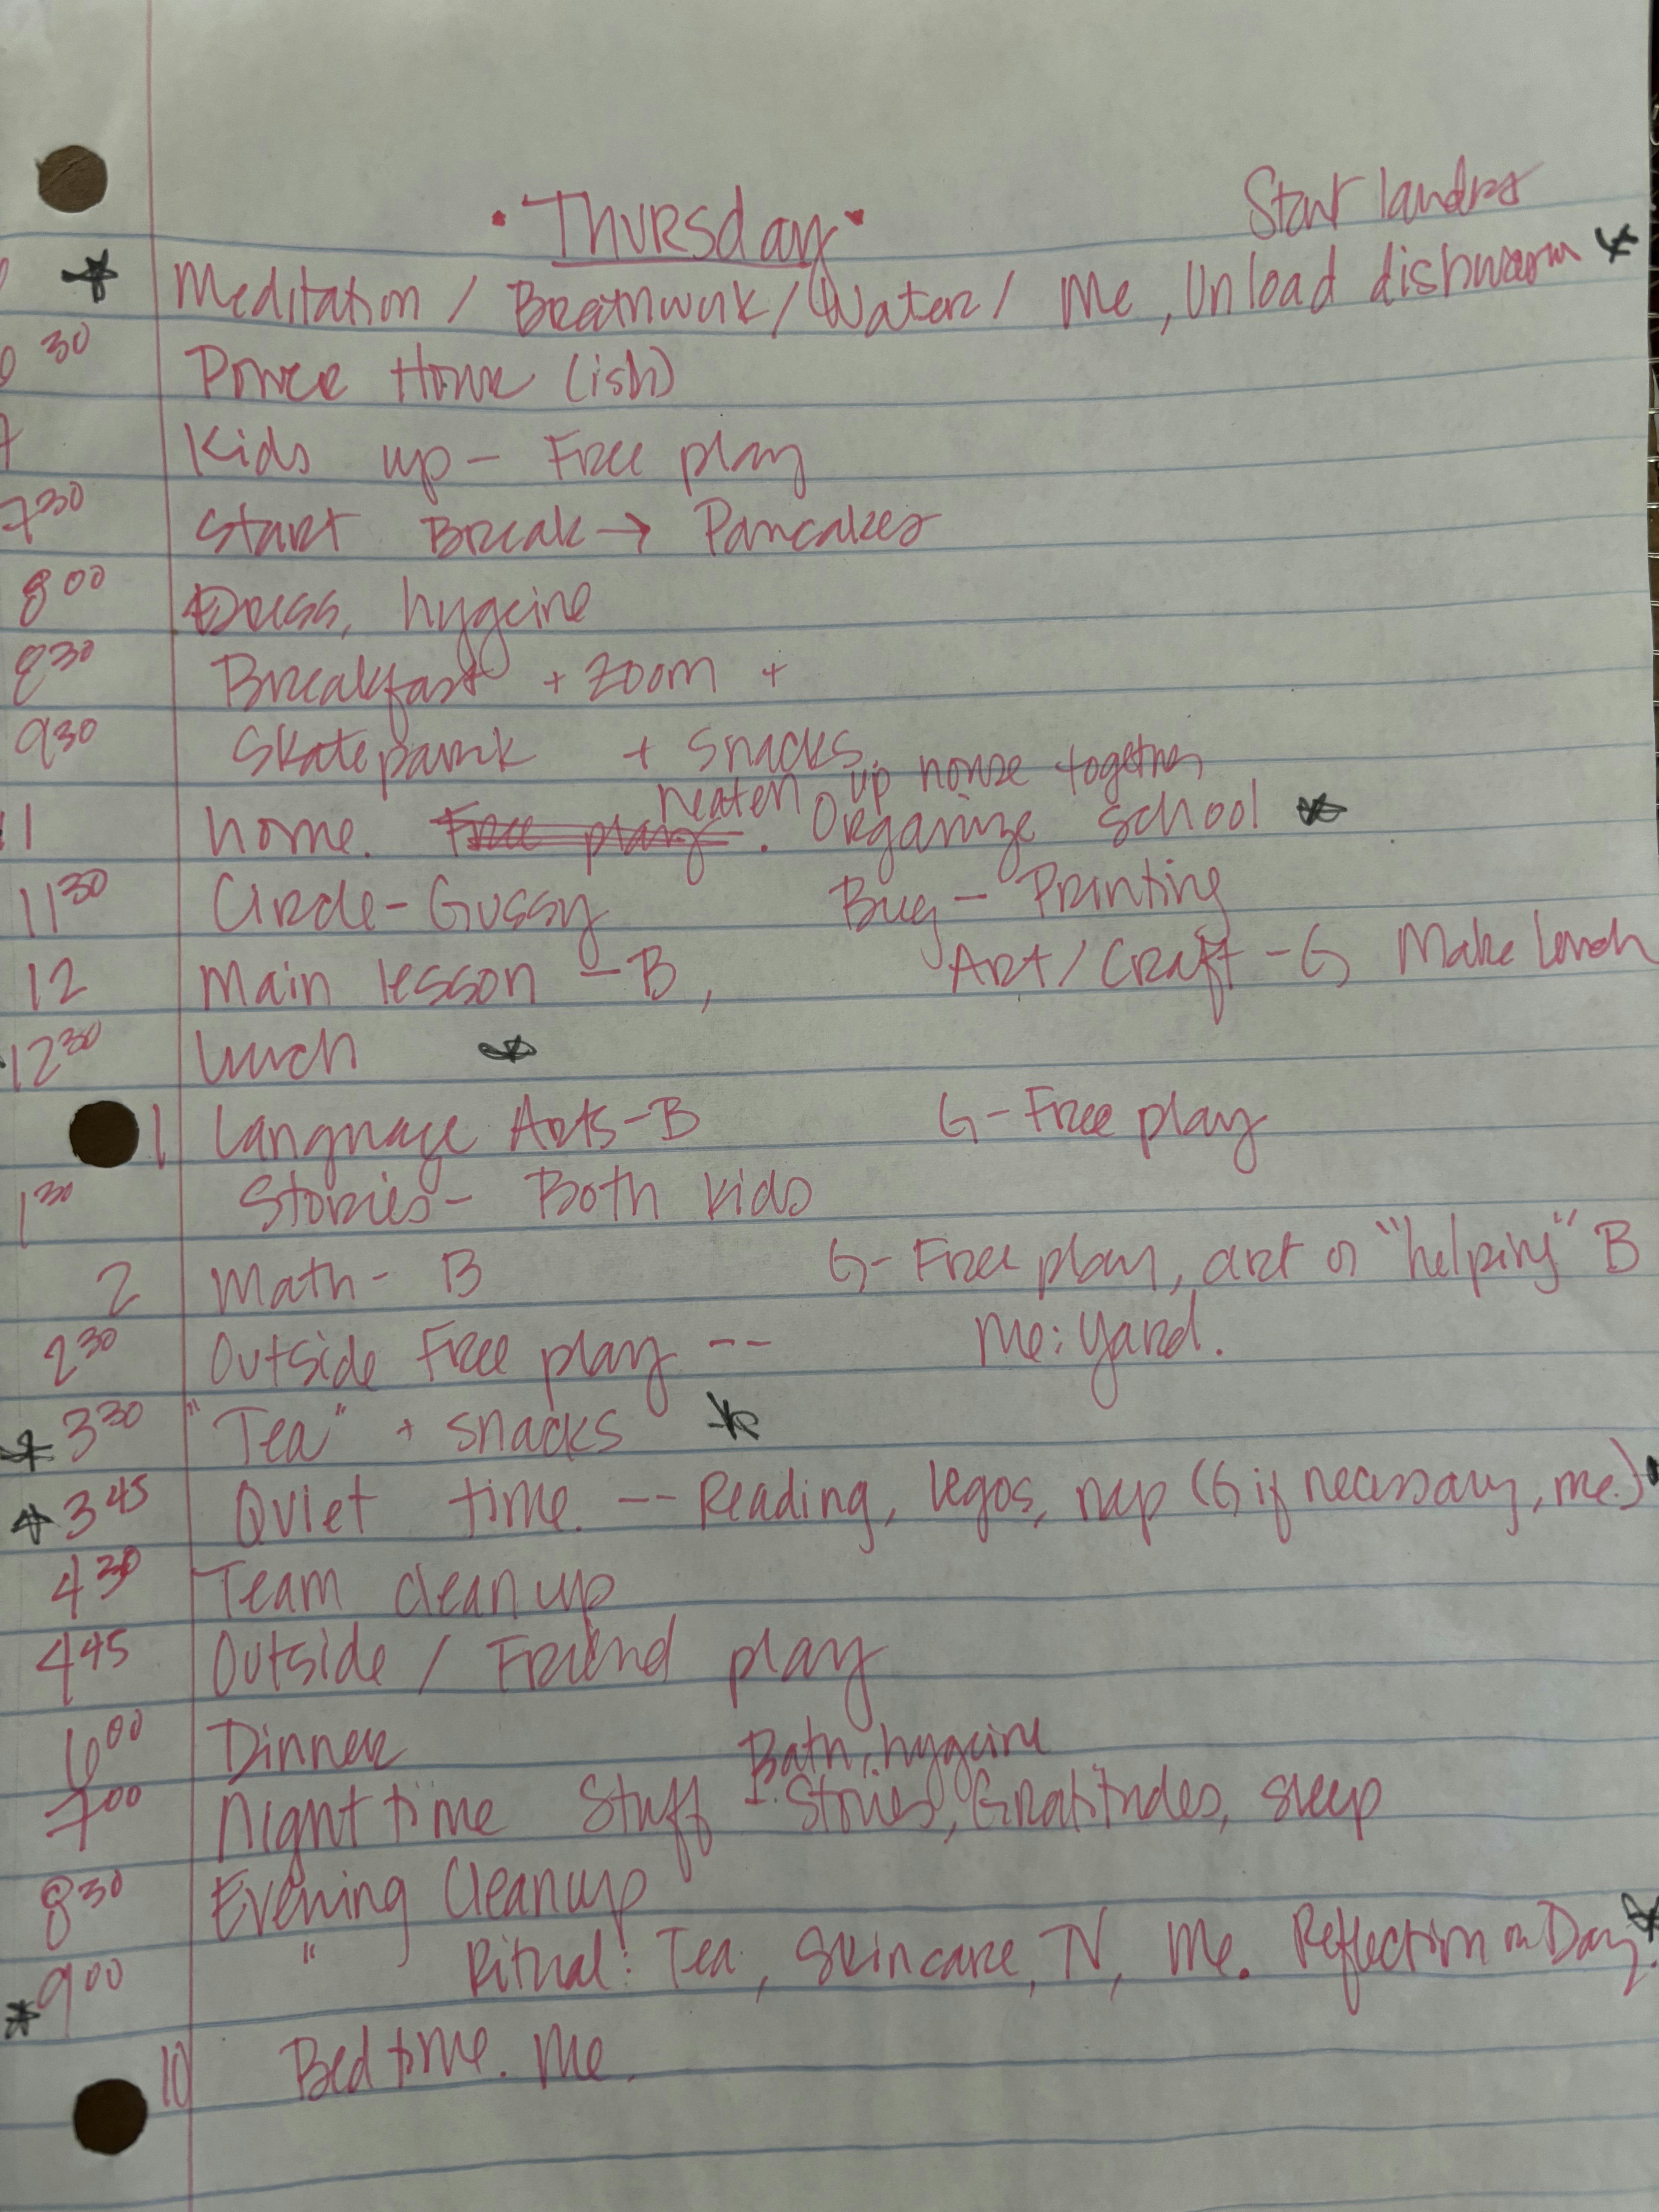 • Thursday •
Start landry
Meditation / Breathwork / Water / Me, Unload dishwarm
30 Power Hour (ish)
7 Kids up - Free play
7 30 Start Break → Pancakes
8 00 Dress, hygeine
8 30 Breakfast + Zoom +
9 30 Skatepark + snacks.
neaten up house together
11 home. Free play. Organize school
11 30 Circle - Gussy Bug - Printing
12 Main lesson - B, Art/Craft - G Make lunch
12 30 lunch
1 Language Arts - B G - Free play
1 30 Stories - Both kids
2 Math - B G - Free play, art or "helping" B
2 30 Outside Free play -- Me: Yard.
3 30 "Tea" + snacks
3 45 Quiet time. -- Reading, legos, nap (G if necessary, me.)
4 30 Team clean up
4 45 Outside / Friend play
6 00 Dinner
Bath, hygeine
7 00 Night time Stuff - Stories, Gratitudes, sleep
8 30 Evening Cleanup
9 00 " Ritual: Tea, Skincare, TV, Me. Reflection on Day.
10 Bedtime. Me.